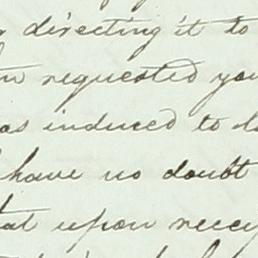 directing it to
requested you
as induced to
have no doubt
at upon recey